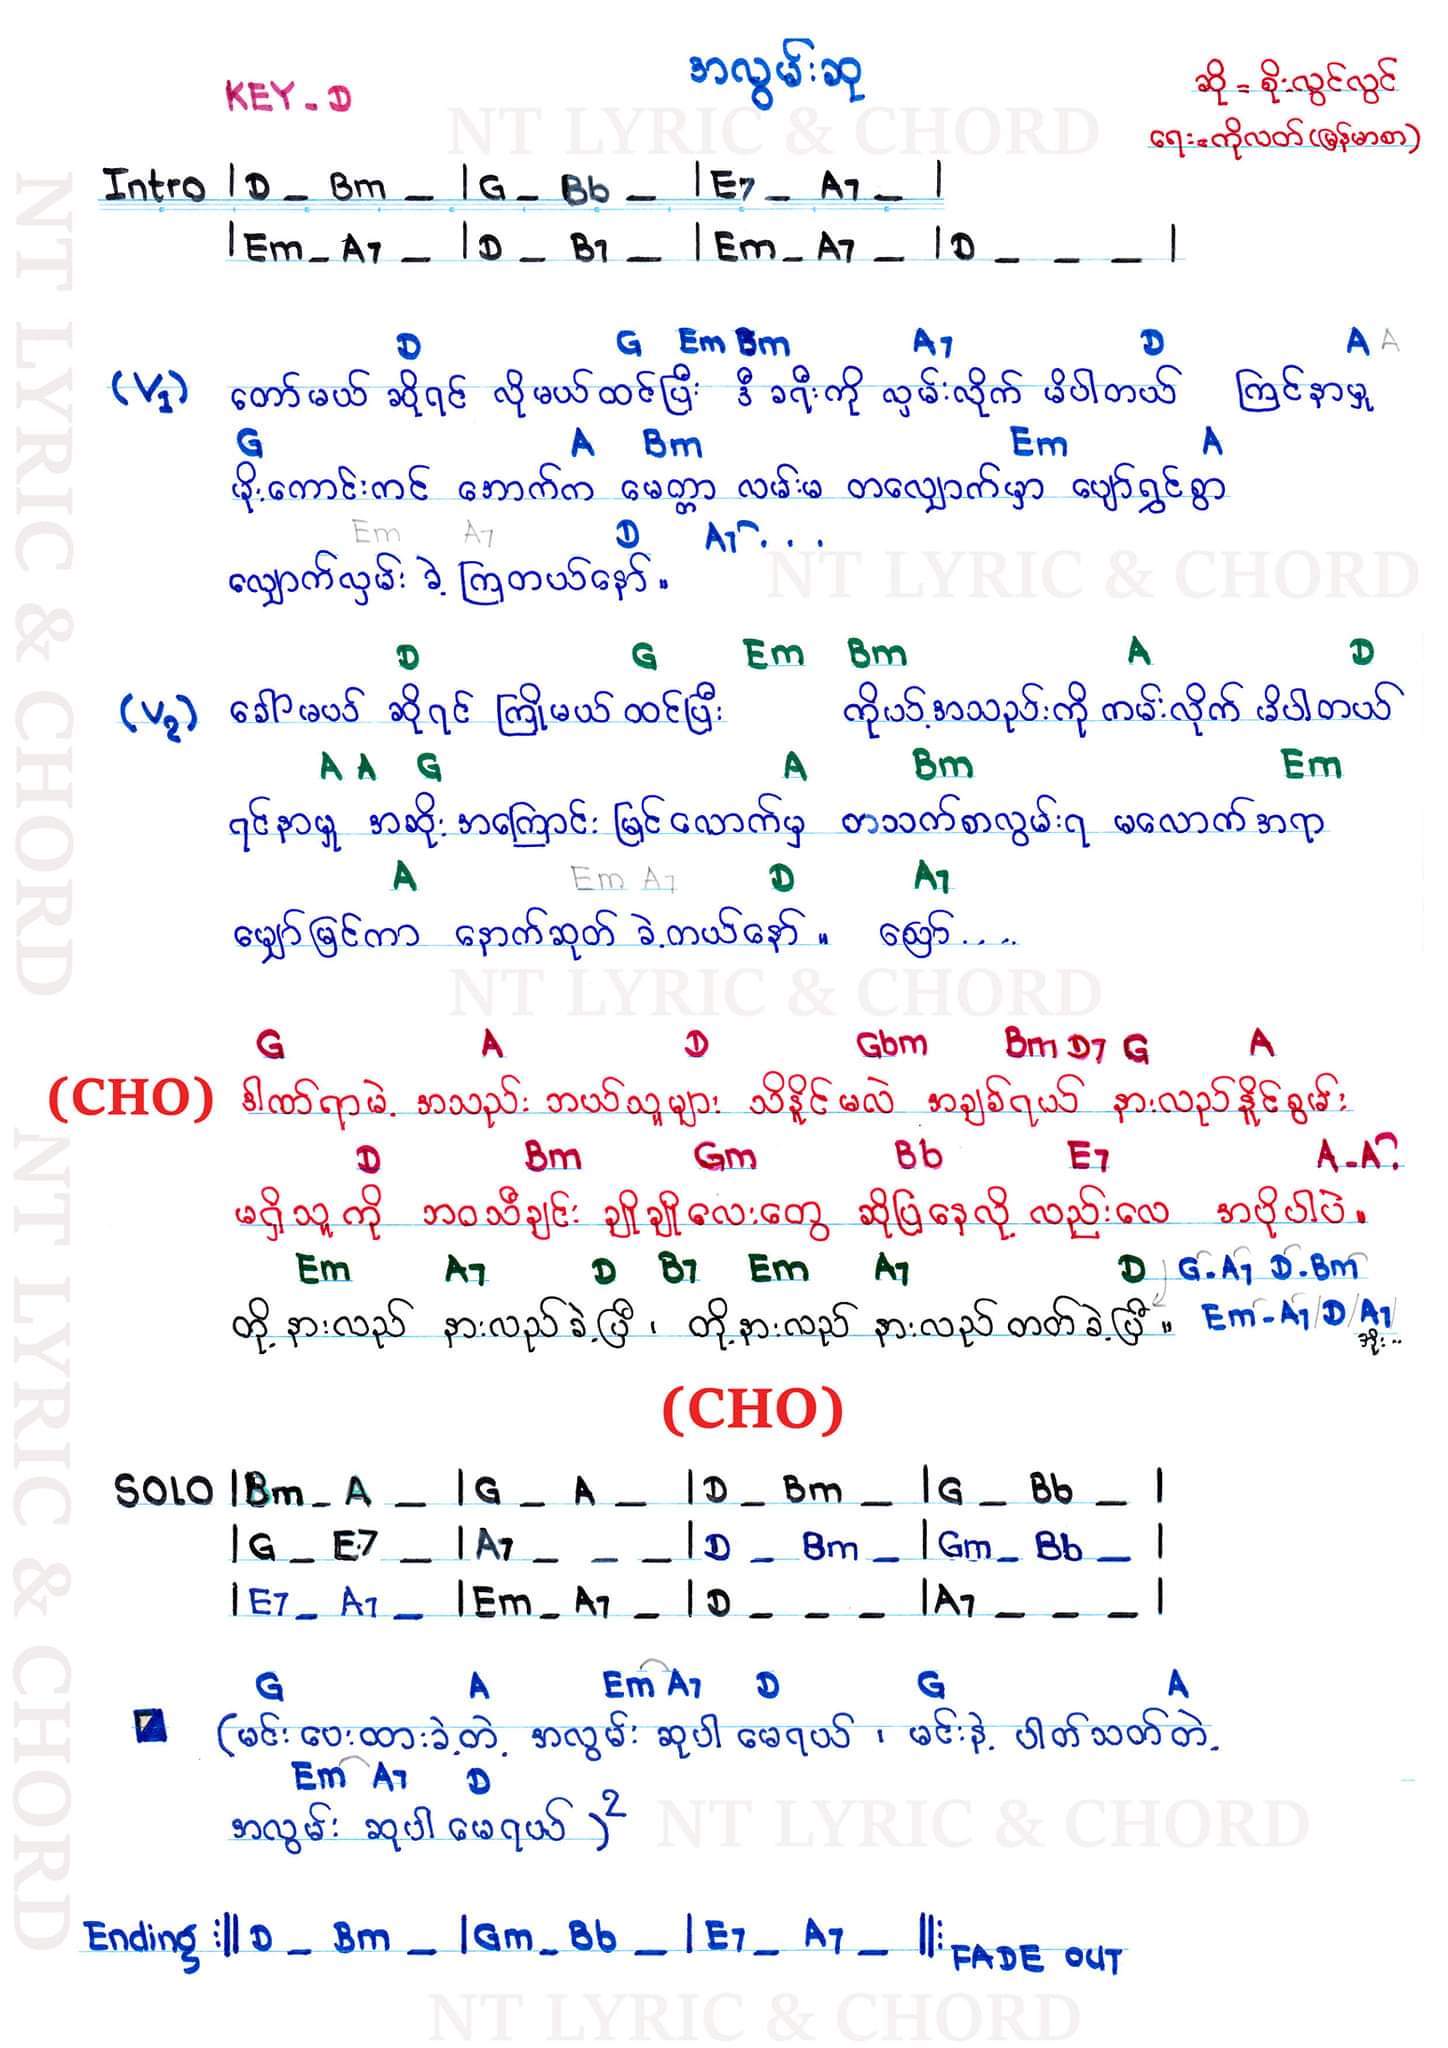 အလွမ်းဆု
KEY - D
ဆို = စိုးလွင်လွင်
ရေး = ကိုလတ် (မြန်မာစာ)
NT LYRIC & CHORD
Intro | D _ Bm _ | G _ Bb _ | E7 _ A7 _ |
| Em _ A7 _ | D _ B7 _ | Em _ A7 _ | D _ _ _ |
D G Em Bm A7 D A A
(V1) တော်မယ် ဆိုရင် လိုမယ်ထင်ပြီး ဒီ ခရီးကို လှမ်းလိုက် မိပါတယ် ကြင်နာမှု
G A Bm Em A
မိုးကောင်းကင် အောက်က မေတ္တာ လမ်းမ တလျှောက်မှာ ပျော်ရွှင်စွာ
Em A7 D A7 . . .
လျှောက်လှမ်း ခဲ့ ကြတယ်နော်။
NT LYRIC & CHORD
D G Em Bm A D
(V2) ခေါ်မယ် ဆိုရင် ကြိုမယ် ထင်ပြီး ကိုယ့်အသည်းကို ကမ်းလိုက် မိပါတယ်
A A G A Bm Em
ရင်နာမှု အဆိုး အကြောင်း မြင်လောက်မှ တသက်စာလွမ်းရ မလောက်အရာ
A Em A7 D A7
မျှော်မြင်ကာ နောက်ဆုတ် ခဲ့တယ်နော်။ ဪ....
NT LYRIC & CHORD
G A D Gbm Bm D7 G A
(CHO) ဒါဏ်ရာမဲ့ အသည်း ဘယ်သူများ သိနိုင်မလဲ အချစ်ရယ် နားလည်နိုင်စွမ်း
D Bm Gm Bb E7 A - A7
မရှိသူကို ဘဝသီချင်း ချိုချိုလေးတွေ ဆိုပြနေလို့ လည်းလေ အပိုပါပဲ။
Em A7 D B7 Em A7 D G - A7 D - Bm
တို့ နားလည် နားလည်ခဲ့ပြီ ၊ တို့နားလည် နားလည်တတ်ခဲ့ပြီ။ Em - A7 / D / A7 /
(CHO)
SOLO | Bm _ A _ | G _ A _ | D _ Bm _ | G _ Bb _ |
| G _ E7 _ | A7 _ _ _ | D _ Bm _ | Gm _ Bb _ |
| E7 _ A7 _ | Em _ A7 _ | D _ _ _ | A7 _ _ _ |
G A Em A7 D G A
(မင်းပေးထားခဲ့တဲ့ အလွမ်း ဆုပါ မေရယ် ၊ မင်းနဲ့ ပါတ်သတ်တဲ့
Em A7 D
အလွမ်း ဆုပါ မေရယ် )2
NT LYRIC & CHORD
Ending :|| D _ Bm _ | Gm _ Bb _ | E7 _ A7 _ ||: FADE OUT
NT LYRIC & CHORD
NT LYRIC & CHORD
NT LYRIC & CHORD